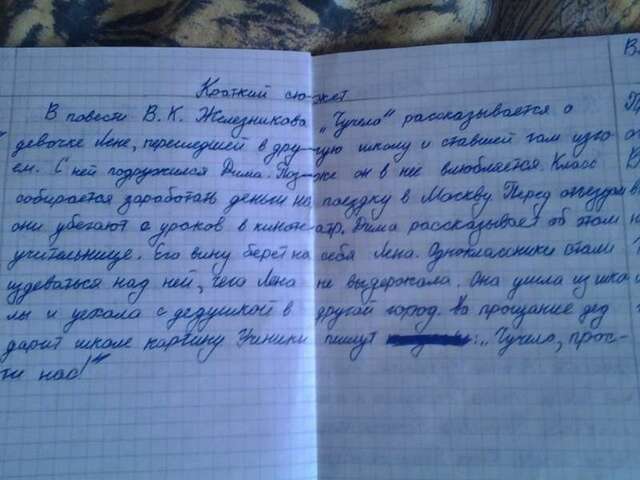 Краткий сюжет
В повести В. К. Железникова „Чучело" рассказывается о
девочке Лене, перешедшей в другую школу и ставшей там изго-
ем. С ней подружился Дима. Позже он в неё влюбляется. Класс
собирается заработать деньги на поездку в Москву. Перед отъездом
они убегают с уроков в кинотеатр. Дима рассказывает об этом
учительнице. Его вину берёт на себя Лена. Одноклассники стали
издеваться над ней, чего Лена не выдержала. Она ушла из шко-
лы и уехала с дедушкой в другой город. На прощание дед
дарит школе картину. Ученики пишут : „Чучело, прос-
ти нас!"
В